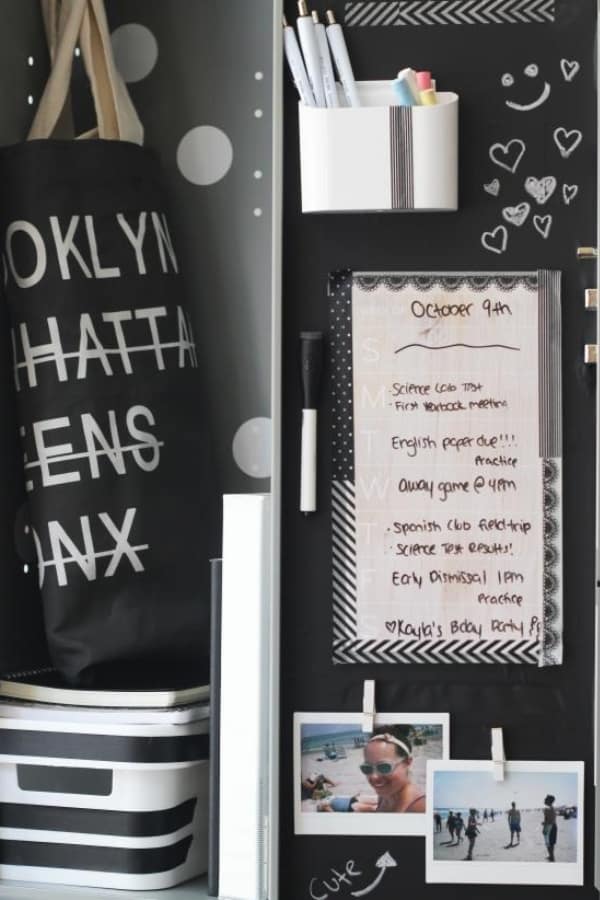 OOKLYN
HATTA
EENS
ONX
October 9th
S
M
T
W
T
F
S
· Science Lab Test
· First Yearbook meeting
English paper due!!!
Practice
Away game @ 4pm
· Spanish Club field-trip
· Science Test Results!
Early Dismissal 1pm
Practice
♡Kayla's Bday Party
Cute